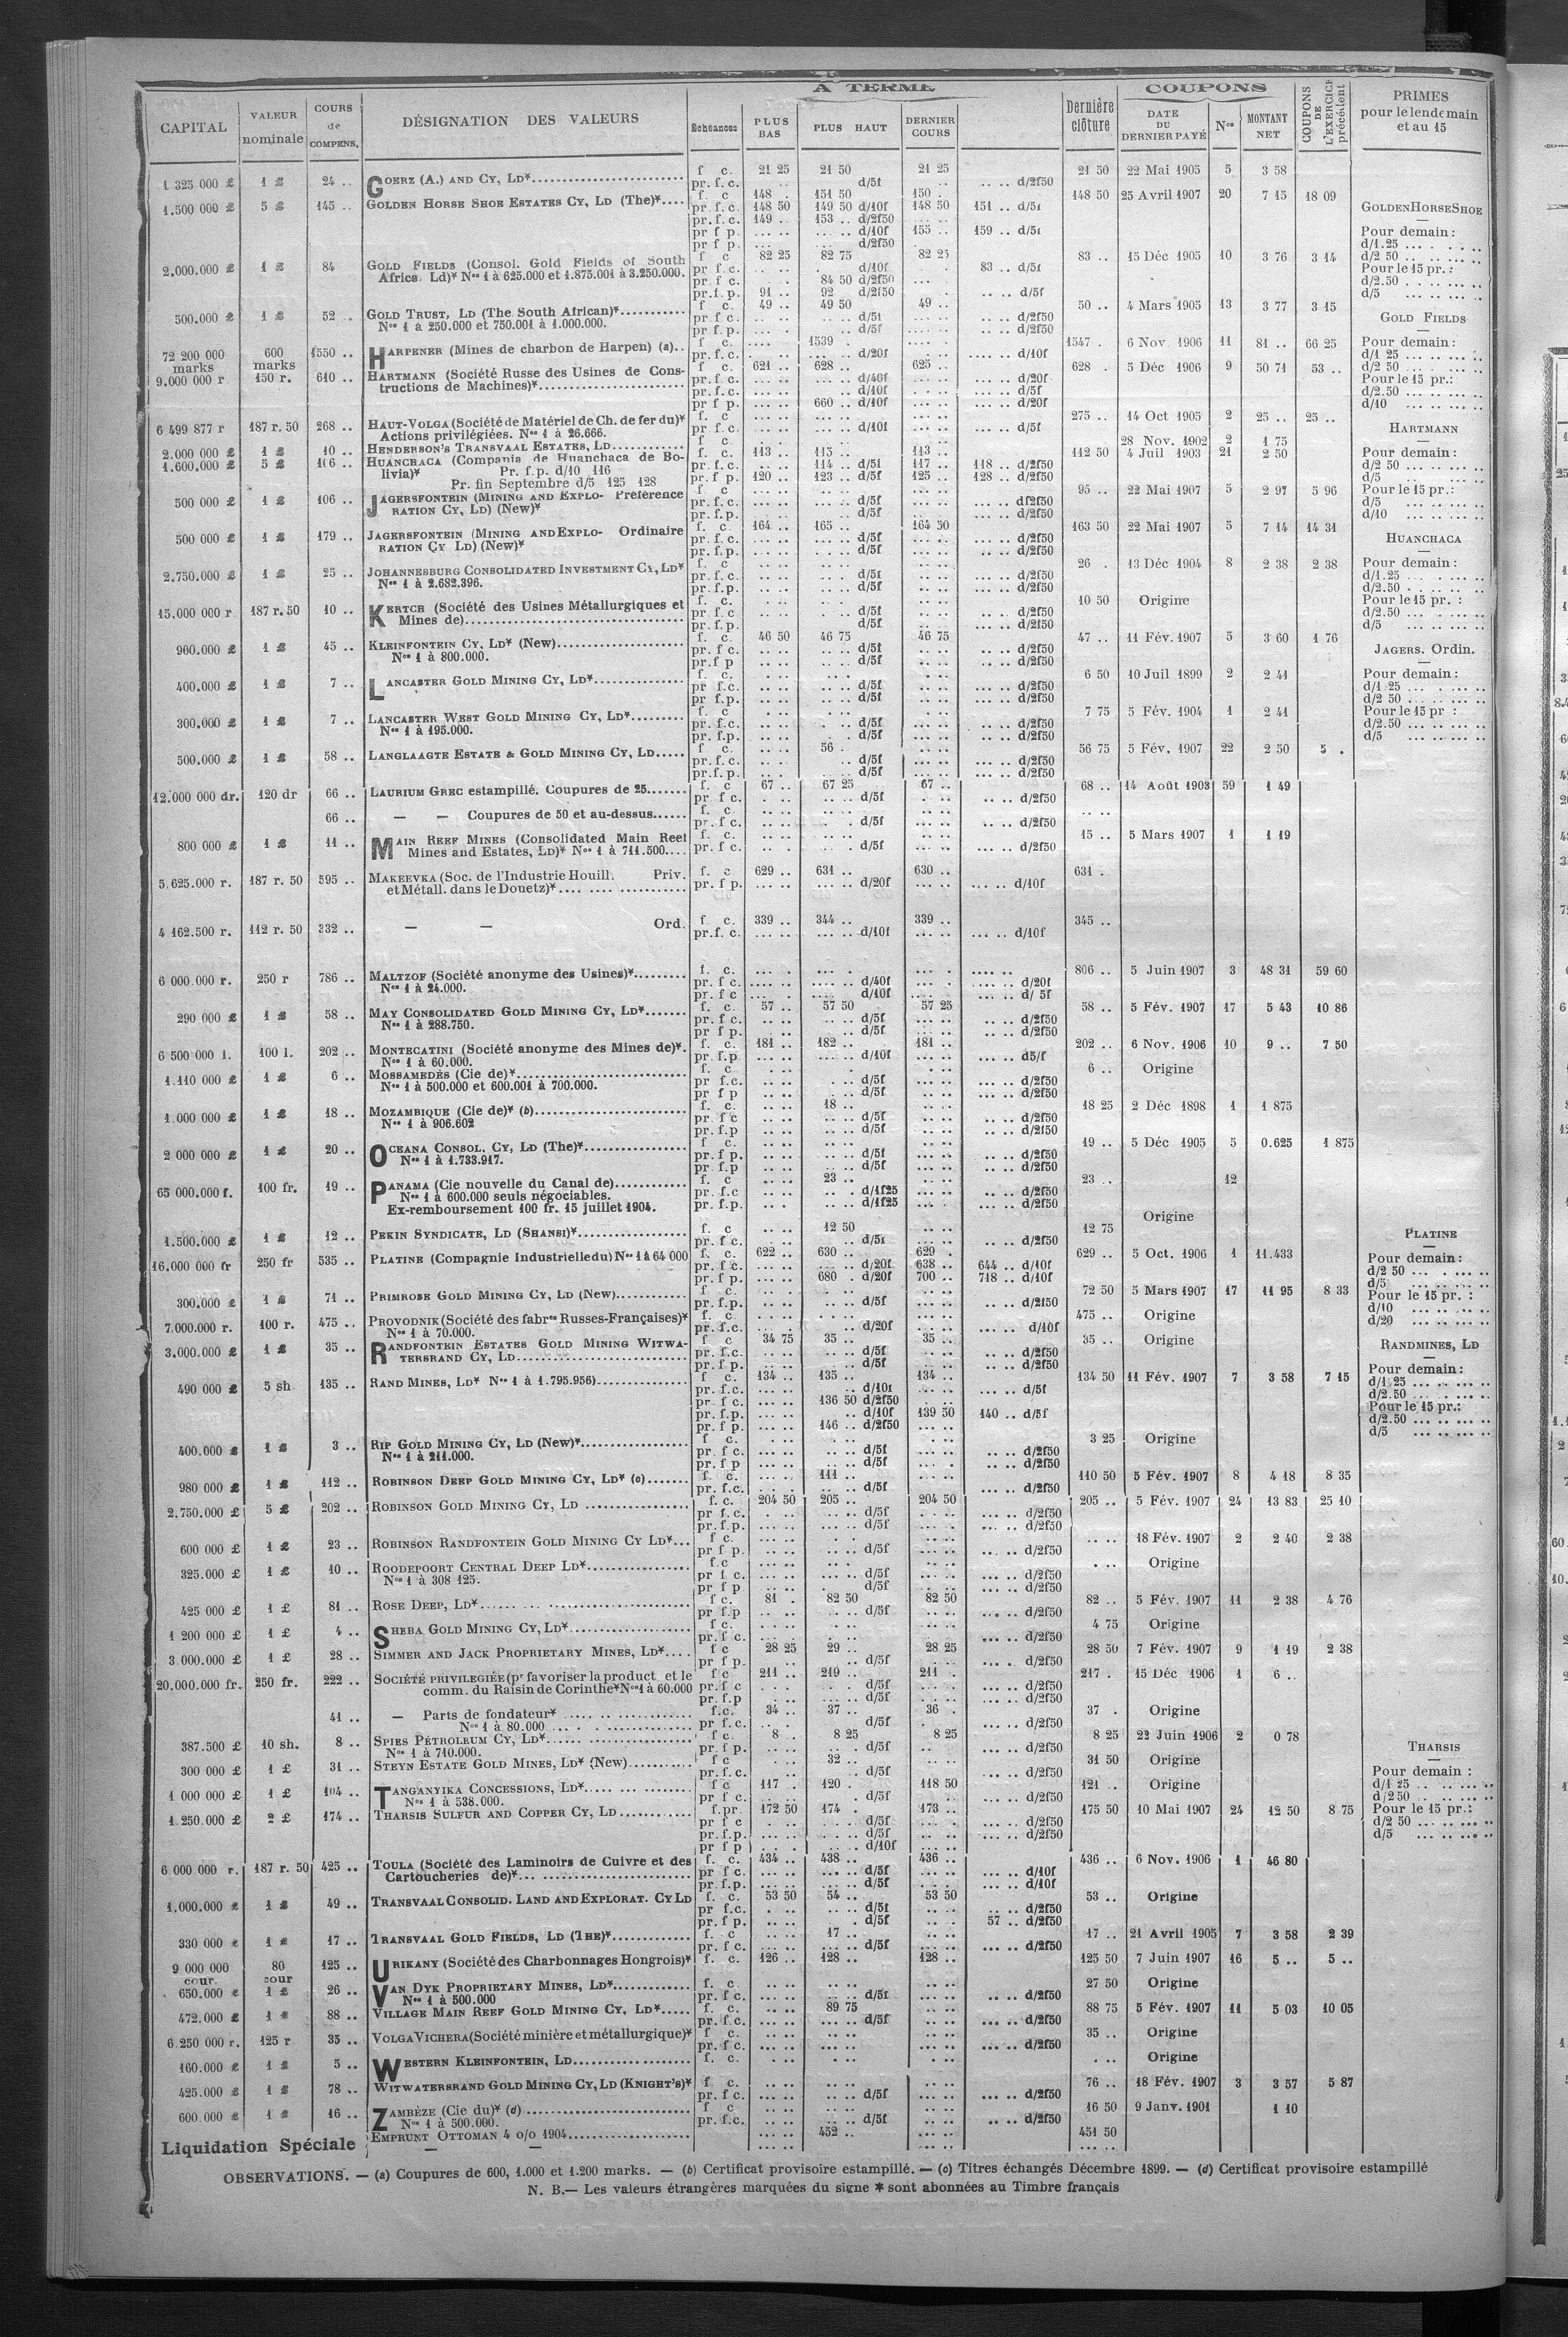 A TERME
COUPONS
CAPITAL
VALEUR nominale
COURS de COMPENS.
DÉSIGNATION DES VALEURS
Echéances
PLUS BAS
PLUS HAUT
DERNIER COURS
Dernière clôture
DATE DU DERNIER PAYÉ
Nos
MONTANT NET
COUPONS DE L'EXERCICE précédent
PRIMES pour le lendemain et au 15
1 325 000 £ 1 £ 24 .. GOERZ (A.) AND CY, LD* f c. 21 25 21 50 21 25 21 50 22 Mai 1905 5 3 58
pr. f. c. d/5f .. .. d/2f50
1.500.000 £ 5 £ 145 .. GOLDEN HORSE SHOE ESTATES CY, LD (The)* f. c 148 .. 151 50 150 . 148 50 25 Avril 1907 20 7 15 18 09
pr. f. c. 148 50 149 50 d/10f 148 50 151 .. d/5f
pr. f. c. 149 .. 153 .. d/2f50
pr f p. d/10f 155 .. 159 .. d/5f
pr f p. d/2f50
2.000.000 £ 1 £ 84 GOLD FIELDS (Consol. Gold Fields of South f c 82 25 82 75 82 25 83 .. 15 Déc 1905 10 3 76 3 14
Africa. Ld)* Nos 1 à 625.000 et 1.875.001 à 3.250.000. pr f. c. d/10f 83 .. d/5f
pr f c. 84 50 d/2f50
pr. f. p. 91 .. 92 d/2f50 .. .. d/5f
500.000 £ 1 £ 52 . GOLD TRUST, LD (The South African)* f c. 49 .. 49 50 49 .. 50 .. 4 Mars 1905 13 3 77 3 15
Nos 1 à 250.000 et 750.001 à 1.000.000. pr f c. d/5f .. .. d/2f50
pr. f. p. d/5f .. .. d/2f50
72 200 000 marks 600 marks 1550 .. HARPENER (Mines de charbon de Harpen) (a).. f c. 1539 . 1547 . 6 Nov 1906 11 81 .. 66 25
pr. f. c. d/20f d/10f
9.000 000 r 150 r. 610 .. HARTMANN (Société Russe des Usines de Cons- f c. 621 .. 628 .. 625 .. 628 . 5 Déc 1906 9 50 71 53 ..
tructions de Machines)* pr. f. c. d/40f d/20f
pr. f. c. d/10f d/5f
pr f p. 660 .. d/10f d/20f
6 499 877 r 187 r. 50 268 .. HAUT-VOLGA (Société de Matériel de Ch. de fer du)* f. c 275 .. 14 Oct 1905 2 25 .. 25 ..
Actions privilégiées. Nos 1 à 26.666. pr f. c. d/10f d/5f
2.000 000 £ 1 £ 10 .. HENDERSON'S TRANSVAAL ESTATES, LD f c. 28 Nov. 1902 2 1 75
1.600.000 £ 5 £ 106 .. HUANCHACA (Compania de Huanchaca de Bo- f c. 113 .. 115 .. 113 .. 112 50 4 Juil 1903 21 2 50
livia)* Pr. f. p. d/10 116 pr. f. c. 114 .. d/5f 117 .. 118 .. d/2f50
Pr. fin Septembre d/5 125 128 pr f p. 120 .. 123 .. d/5f 125 .. 128 .. d/2f50
500 000 £ 1 £ 106 .. JAGERSFONTEIN (MINING AND EXPLO- Préférence f c 95 .. 22 Mai 1907 5 2 97 5 96
RATION CY, LD) (New)* pr. f. c. d/5f d/2f50
pr. f. p. d/5f d/2f50
500 000 £ 1 £ 179 .. JAGERSFONTEIN (MINING AND EXPLO- Ordinaire f. c. 164 .. 165 .. 164 50 163 50 22 Mai 1907 5 7 14 14 31
RATION CY LD) (New)* pr. f. c. d/5f d/2f50
pr. f. p. d/5f d/2f50
2.750.000 £ 1 £ 25 .. JOHANNESBURG CONSOLIDATED INVESTMENT CY, LD* f. c 26 . 13 Déc 1904 8 2 38 2 38
Nos 1 à 2.682.396. pr. f. c. d/5f d/2f50
pr. f. p. d/5f d/2f50
15.000 000 r 187 r. 50 10 .. KERTCH (Société des Usines Métallurgiques et f. c. 10 50 Origine
Mines de) pr f. c. d/5f d/2f50
pr. f. p. d/5f d/2f50
900.000 £ 1 £ 45 .. KLEINFONTEIN CY, LD* (New) f. c. 46 50 46 75 46 75 47 .. 11 Fév. 1907 5 3 60 1 76
Nos 1 à 800.000. pr. f c. d/5f d/2f50
pr. f p d/5f d/2f50
400.000 £ 1 £ 7 .. LANCASTER GOLD MINING CY, LD* f. c. 6 50 10 Juil 1899 2 2 41
pr f. c. d/5f d/2f50
pr f. p. d/5f d/2f50
300.000 £ 1 £ 7 .. LANCASTER WEST GOLD MINING CY, LD* f. c 7 75 5 Fév. 1904 1 2 41
Nos 1 à 195.000. pr. f. c. d/5f d/2f50
pr. f. p. d/5f d/2f50
500.000 £ 1 £ 58 .. LANGLAAGTE ESTATE & GOLD MINING CY, LD f c. 56 . 56 75 5 Fév. 1907 22 2 50 5 .
pr. f. c. d/5f d/2f50
pr. f. p. d/5f d/2f50
12.000 000 dr. 120 dr 66 .. LAURIUM GREC estampillé. Coupures de 25 f. c 67 .. 67 25 67 .. 68 .. 14 Août 1903 59 1 49
pr f c. d/5f d/2f50
66 .. — — Coupures de 50 et au-dessus f. c. .. ..
pr. f c. d/5f d/2f50
800 000 £ 1 £ 11 .. MAIN REEF MINES (Consolidated Main Reef f. c. 15 .. 5 Mars 1907 1 1 19
Mines and Estates, LD)* Nos 1 à 711.500 pr f c. d/5f d/2f50
5.625.000 r. 187 r. 50 595 .. MAKEEVKA (Soc. de l'Industrie Houill. Priv. f. c 629 .. 631 .. 630 .. 631 .
et Métall. dans le Douetz)* pr. f p. d/20f d/10f
4 162.500 r. 112 r. 50 332 .. — — Ord. f. c. 339 .. 344 .. 339 .. 345 ..
pr. f. c. d/10f d/10f
6 000.000 r. 250 r 786 .. MALTZOF (Société anonyme des Usines)* f. c. 806 .. 5 Juin 1907 3 48 31 59 60
Nos 1 à 24.000. pr. f c. d/40f d/20f
pr f c d/10f d/ 5f
290 000 £ 1 £ 58 .. MAY CONSOLIDATED GOLD MINING CY, LD* f. c 57 .. 57 50 57 25 58 .. 5 Fév. 1907 17 5 43 10 86
Nos 1 à 288.750. pr. f c. d/5f d/2f50
pr f p. d/5f d/2f50
6 500 000 l. 100 l. 202 .. MONTECATINI (Société anonyme des Mines de)*. f. c. 181 .. 182 .. 181 .. 202 .. 6 Nov. 1906 10 9 .. 7 50
Nos 1 à 60.000. pr. f. p d/10f d5/f
1.110 000 £ 1 £ 6 .. MOSSAMEDÈS (Cie de)* f. c. 6 .. Origine
Nos 1 à 500.000 et 600.001 à 700.000. pr f. c. d/5f d/2f50
pr f p d/5f d/2f50
1.000 000 £ 1 £ 18 .. MOZAMBIQUE (Cie de)* (b) f. c. 18 .. 18 25 2 Déc 1898 1 1 875
Nos 1 à 906.602 pr. f c d/5f d/2f50
pr. f. p d/5f d/2f50
2 000 000 £ 1 £ 20 .. OCEANA CONSOL. CY, LD (The)* f c. 19 .. 5 Déc. 1905 5 0.625 1 875
Nos 1 à 1.733.917. pr. f p. d/5f d/2f50
pr. f. p d/5f d/2f50
65 000.000 f. 100 fr. 19 .. PANAMA (Cie nouvelle du Canal de) f. c 23 .. 23 .. 12
Nos 1 à 600.000 seuls négociables. pr. f. c d/1f25 d/2f50
Ex-remboursement 100 fr. 15 juillet 1904. pr. f. p. d/1f25 d/2f50
1.500.000 £ 1 £ 12 .. PEKIN SYNDICATE, LD (SHANSI)* f. c 12 50 12 75 Origine
pr. f c. d/5f d/2f50
16.000 000 fr 250 fr 535 .. PLATINE (Compagnie Industrielle du) Nos 1 à 64 000 f. c. 622 .. 630 .. 629 . 629 .. 5 Oct. 1906 1 11.433
pr. f c. d/20f 638 .. 644 .. d/10f
pr. f p. 680 . d/20f 700 .. 718 .. d/10f
300.000 £ 1 £ 71 .. PRIMROSE GOLD MINING CY, LD (New) f. c. 72 50 5 Mars 1907 17 11 95 8 33
pr. f. p. d/5f d/2f50
7.000.000 r. 100 r. 475 .. PROVODNIK (Société des fabres Russes-Françaises)* f. c. 475 .. Origine
Nos 1 à 70.000. pr. f. c. d/20f d/10f
3.000.000 £ 1 £ 35 .. RANDFONTEIN ESTATES GOLD MINING WITWA- f c 34 75 35 .. 35 .. 35 .. Origine
TERSRAND CY, LD pr. f. c. d/5f d/2f50
pr. f p. d/5f d/2f50
490 000 £ 5 sh. 135 .. RAND MINES, LD* Nos 1 à 1.795.956) f c. 134 .. 135 .. 134 .. 134 50 11 Fév. 1907 7 3 58 7 15
pr. f. c. d/10f d/5f
pr. f c. 136 50 d/2f50
pr. f. p. d/10f 139 50 140 .. d/5f
pr. f p. 146 .. d/2f50
400.000 £ 1 £ 3 .. RIP GOLD MINING CY, LD (New)* f c. 3 25 Origine
Nos 1 à 211.000. pr. f c. d/5f d/2f50
pr f p d/5f d/2f50
980 000 £ 1 £ 112 .. ROBINSON DEEP GOLD MINING CY, LD* (c) f. c. 111 .. 110 50 5 Fév. 1907 8 4 18 8 35
pr. f. c. d/5f d/2f50
2.750.000 £ 5 £ 202 .. ROBINSON GOLD MINING CY, LD f. c. 204 50 205 .. 204 50 205 .. 5 Fév. 1907 24 13 83 25 10
pr f. c. d/5f d/2f50
pr. f. p. d/5f d/2f50
600 000 £ 1 £ 23 .. ROBINSON RANDFONTEIN GOLD MINING CY LD* f c. .. .. 18 Fév. 1907 2 2 40 2 38
pr f p. d/5f d/2f50
325.000 £ 1 £ 10 .. ROODEPOORT CENTRAL DEEP LD* f. c Origine
Nos 1 à 308 125. pr f c. d/5f d/2f50
pr f p d/5f d/2f50
425 000 £ 1 £ 81 .. ROSE DEEP, LD* f c. 81 . 82 50 82 50 82 .. 5 Fév. 1907 11 2 38 4 76
pr f. p d/5f d/2f50
1 200 000 £ 1 £ 4 .. SHEBA GOLD MINING CY, LD* f c. 4 75 Origine
pr. f c. d/2f50
3.000.000 £ 1 £ 28 .. SIMMER AND JACK PROPRIETARY MINES, LD* f c 28 25 29 .. 28 25 28 50 7 Fév. 1907 9 1 19 2 38
pr f p. d/5f d/2f50
20.000.000 fr. 250 fr. 222 .. SOCIÉTÉ PRIVILEGIÉE (pr favoriser la product. et le f c 211 .. 219 .. 211 . 217 . 15 Déc 1906 1 6 ..
comm. du Raisin de Corinthe* Nos 1 à 60.000 pr. f c d/5f d/2f50
pr. f. p d/5f d/2f50
41 .. — Parts de fondateur* f. c. 34 .. 37 .. 36 . 37 . Origine
Nos 1 à 80.000 pr f. c. d/5f d/2f50
387.500 £ 10 sh. 8 .. SPIES PÉTROLEUM CY, LD* f c. 8 . 8 25 8 25 8 25 22 Juin 1906 2 0 78
Nos 1 à 710.000. pr. f p. d/5f d/2f50
300 000 £ 1 £ 31 .. STEYN ESTATE GOLD MINES, LD* (New) f c 32 .. 31 50 Origine
pr. f. c. d/5f d/2f50
1 000 000 £ 1 £ 104 .. TANGANYIKA CONCESSIONS, LD* f c 117 . 120 . 118 50 121 .. Origine
Nos 1 à 538.000. pr f c. d/5f d/2f50
1.250.000 £ 2 £ 174 .. THARSIS SULFUR AND COPPER CY, LD f. pr. 172 50 174 . 173 .. 175 50 10 Mai 1907 24 12 50 8 75
pr f c d/5f d/2f50
pr. f. p. d/5f d/2f50
pr f p d/10f
6 000 000 r. 187 r. 50 425 .. TOULA (Société des Laminoirs de Cuivre et des f. c. 434 .. 438 .. 436 .. 436 .. 6 Nov. 1906 1 46 80
Cartoucheries de)* pr f c. d/5f d/10f
pr. f. p. d/5f d/10f
1.000.000 £ 1 £ 49 .. TRANSVAAL CONSOLID. LAND AND EXPLORAT. CY LD f. c. 53 50 54 .. 53 50 53 .. Origine
pr f. c. d/5f d/2f50
pr. f p. d/5f 57 .. d/2f50
330 000 £ 1 £ 17 .. TRANSVAAL GOLD FIELDS, LD (THE)* f. c 17 .. 17 .. 21 Avril 1905 7 3 58 2 39
pr. f c. d/5f d/2f50
9 000 000 cour. 80 cour 125 .. URIKANY (Société des Charbonnages Hongrois)* f. c. 126 .. 128 .. 128 .. 125 50 7 Juin 1907 16 5 .. 5 ..
650.000 £ 1 £ 26 .. VAN DYK PROPRIETARY MINES, LD* f. c. 27 50 Origine
Nos 1 à 500.000 pr. f c. d/5f d/2f50
472.000 £ 1 £ 88 .. VILLAGE MAIN REEF GOLD MINING CY, LD* f. c. 89 75 88 75 5 Fév. 1907 11 5 03 10 05
pr. f c. d/5f d/2f50
6 250 000 r. 125 r 35 .. VOLGA VICHERA (Société minière et métallurgique)* f c. 35 .. Origine
pr. f c. d/2f50
160.000 £ 1 £ 5 .. WESTERN KLEINFONTEIN, LD f. c. Origine
425.000 £ 1 £ 78 .. WITWATERSRAND GOLD MINING CY, LD (KNIGHT'S)* f c. 76 .. 18 Fév. 1907 3 3 57 5 87
pr. f c. d/5f d/2f50
600.000 £ 1 £ 16 .. ZAMBÈZE (Cie du)* (d) f. c 16 50 9 Janv. 1901 1 10
Nos 1 à 500.000. pr. f. c. d/5f d/2f50
Liquidation Spéciale EMPRUNT OTTOMAN 4 o/o 1904 452 .. 451 50
— —
GOLDEN HORSE SHOE
Pour demain :
d/1.25
d/2 50
Pour le 15 pr. :
d/2.50
d/5
GOLD FIELDS
Pour demain :
d/1 25
d/2 50
Pour le 15 pr. :
d/2.50
d/10
HARTMANN
Pour demain :
d/2 50
d/5
Pour le 15 pr. :
d/5
d/10
HUANCHACA
Pour demain :
d/1.25
d/2.50
Pour le 15 pr. :
d/2.50
d/5
JAGERS. Ordin.
Pour demain :
d/1 25
d/2 50
Pour le 15 pr :
d/2.50
d/5
PLATINE
Pour demain :
d/2 50
d/5
Pour le 15 pr. :
d/10
d/20
RANDMINES, LD
Pour demain :
d/1.25
d/2.50
Pour le 15 pr. :
d/2.50
d/5
THARSIS
Pour demain :
d/1 25
d/2 50
Pour le 15 pr. :
d/2 50
d/5
OBSERVATIONS. — (a) Coupures de 600, 1.000 et 1.200 marks. — (b) Certificat provisoire estampillé. — (c) Titres échangés Décembre 1899. — (d) Certificat provisoire estampillé
N. B. — Les valeurs étrangères marquées du signe * sont abonnées au Timbre français